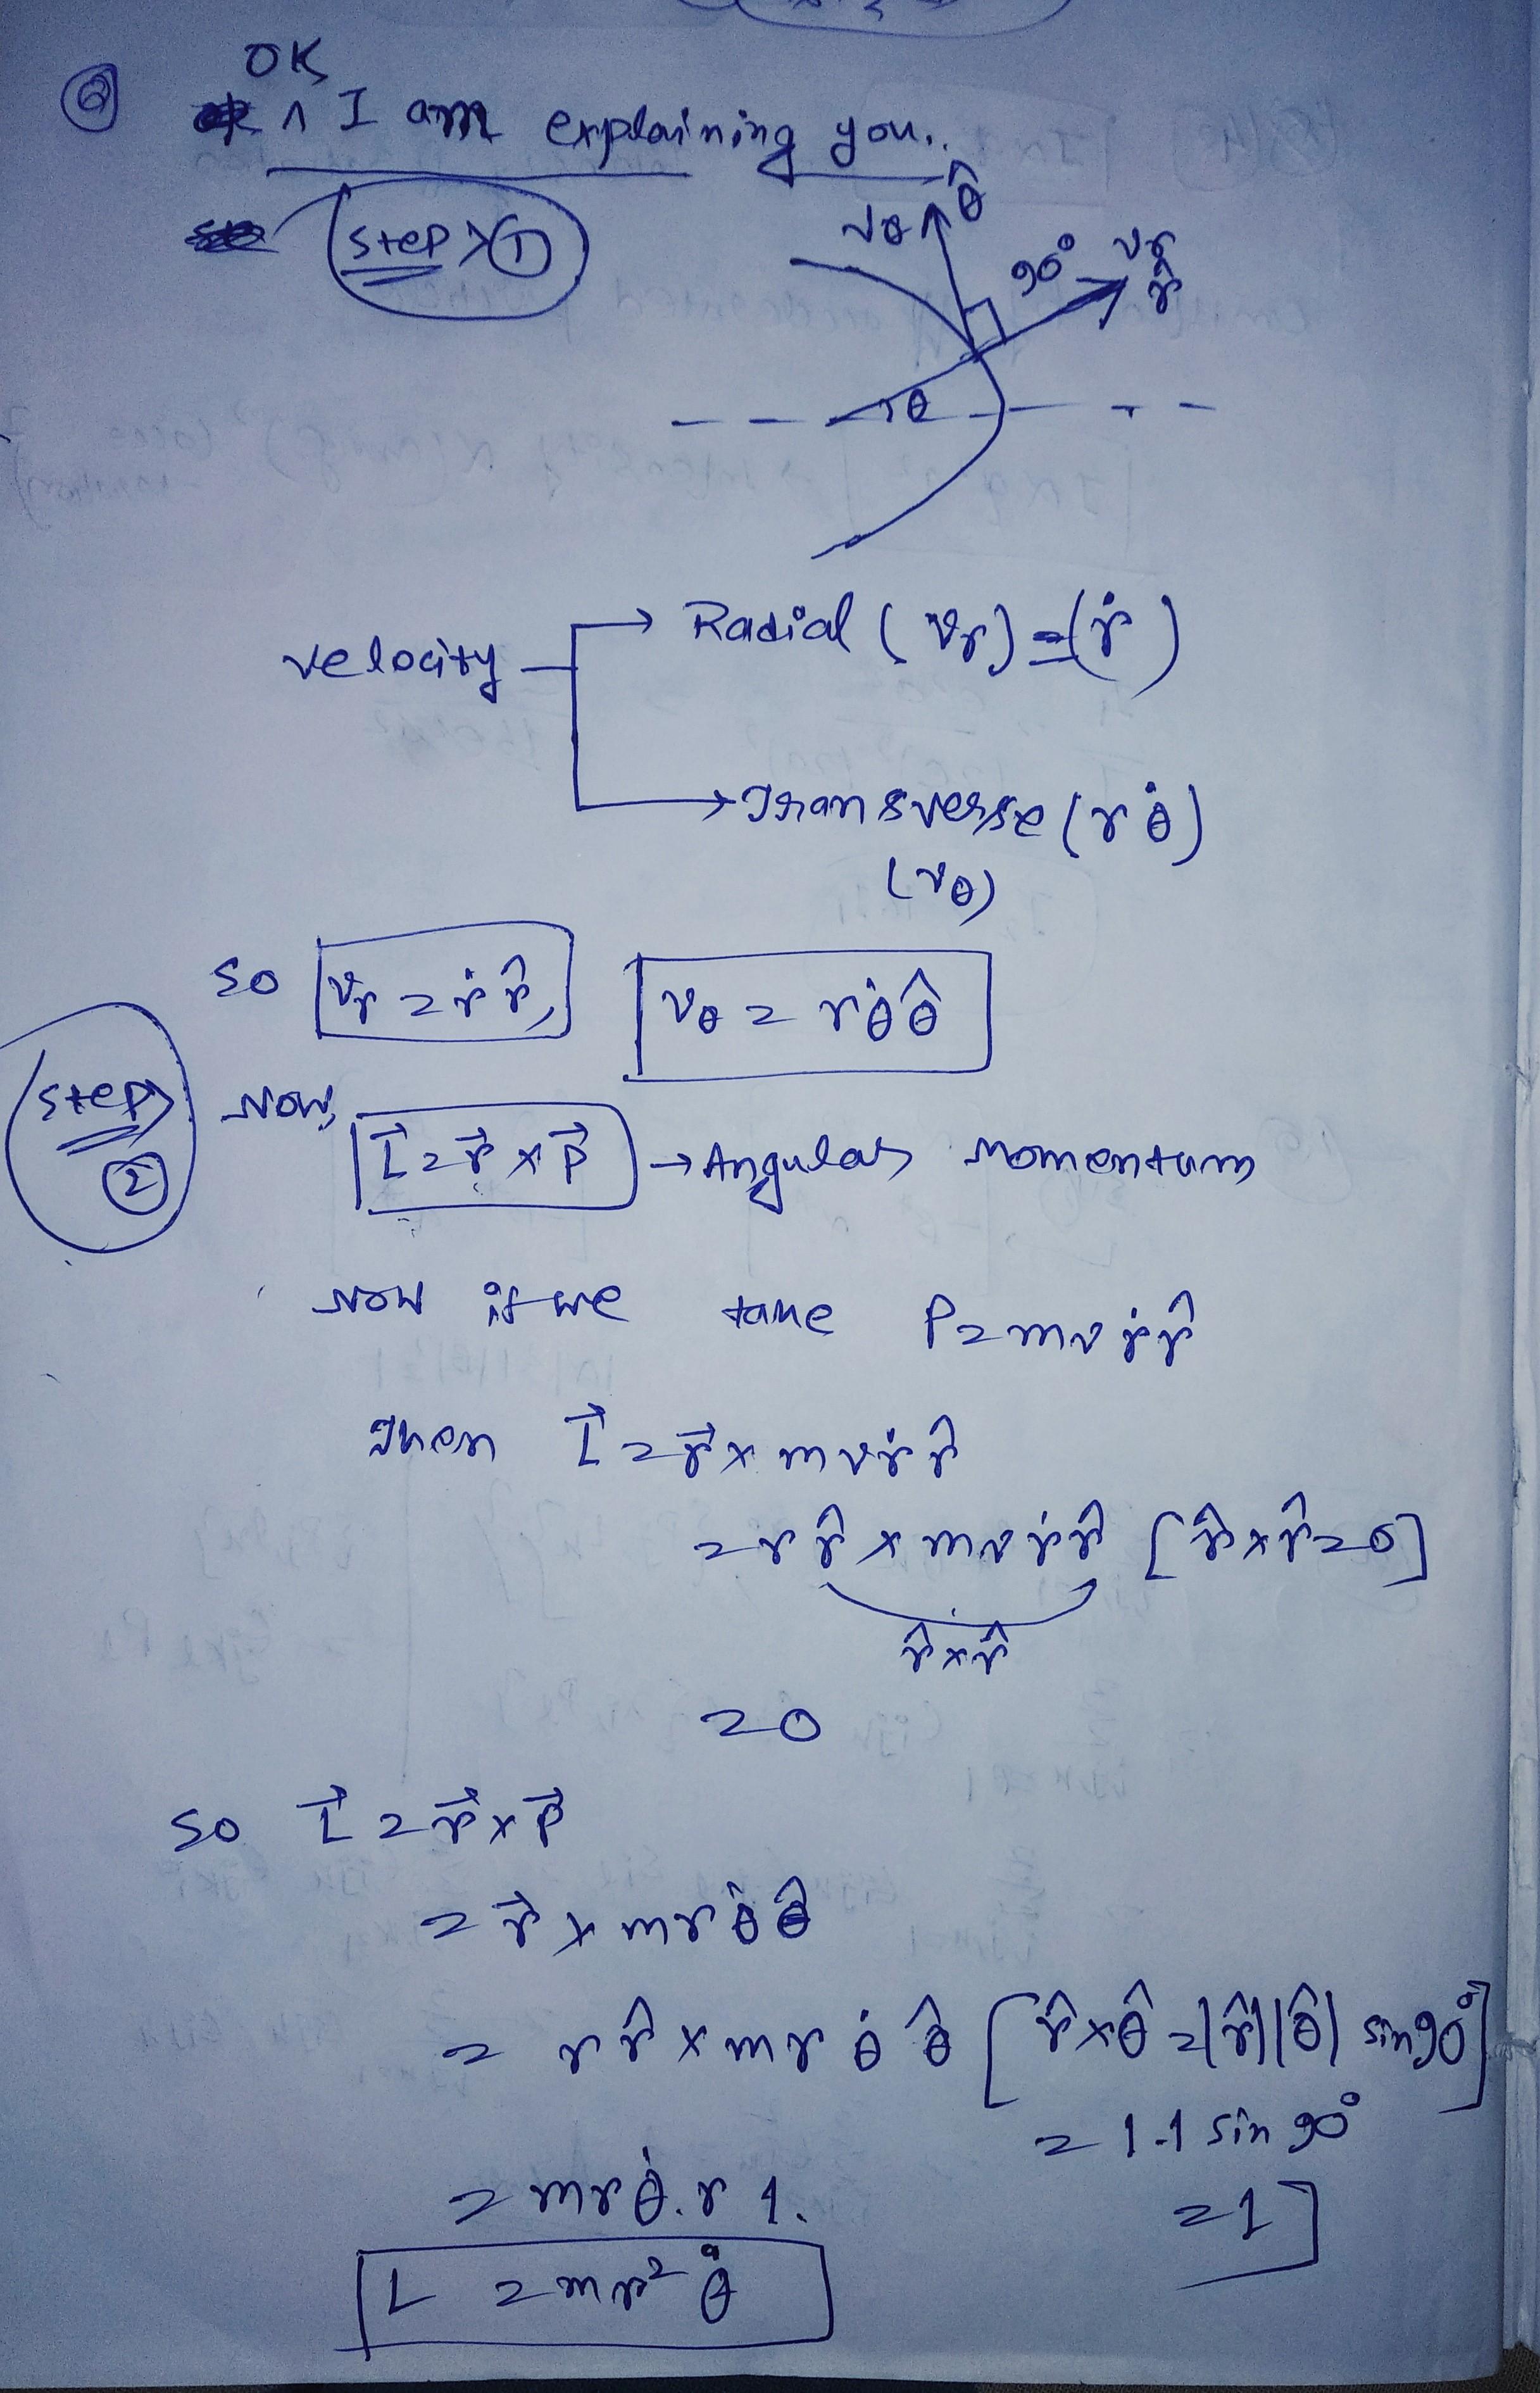 OK
Q ^ I am explaining you..
Step > 1
vθ θ̂
90° vr r̂
θ
velocity → Radial (vr) = (ṙ)
→ Transverse (rθ̇)
(vθ)
so vr = ṙ r̂, vθ = rθ̇ θ̂
Step > 2
Now, L⃗ = r⃗ × P⃗ → Angular Momentum
Now if we take P = mv ṙ r̂
Then L⃗ = r⃗ × mv ṙ r̂
= r r̂ × mv ṙ r̂ [r̂ × r̂ = 0]
r̂ × r̂
= 0
so L⃗ = r⃗ × P⃗
= r⃗ × mr θ̇ θ̂
= r r̂ × mr θ̇ θ̂ [r̂ × θ̂ = |r̂||θ̂| sin 90°]
= 1.1 sin 90°
= mrθ̇.r 1.
= 1]
L = mr² θ̇